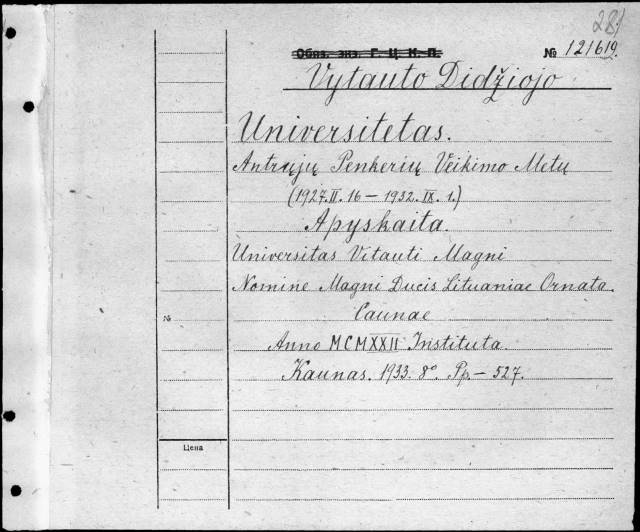 281
Обяз. экз. Г. Ц. К. П.
№ 121619.
Vytauto Didžiojo
Universitetas.
Antrųjų Penkerių Veikimo Metų
(1927.II.16 — 1932.IX.1.)
Apyskaita.
Universitas Vitauti Magni
Nomine Magni Ducis Lituaniae Ornata.
№
Caunae
Anno MCMXXII Instituta.
Kaunas. 1933. 8º. Pp. — 527.
Цена